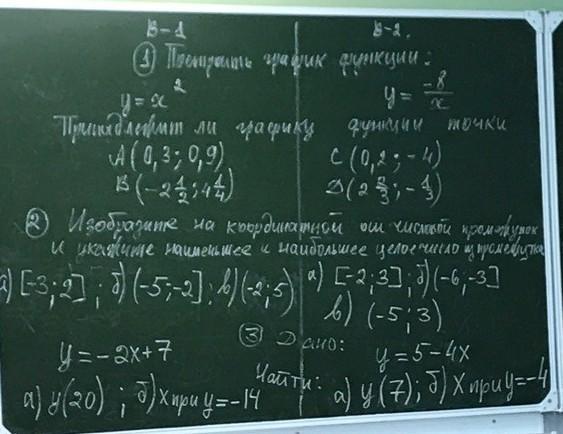 В-1 В-2.
① Построить график функции:
y = x² y = -8/x
Принадлежит ли графику функции точки
A(0,3; 0,9) C(0,2; -4)
B(-2 1/2; 4 1/4) D(2 2/3; -1/3)
② Изобразите на координатной оси числовой промежуток
и укажите наименьшее и наибольшее целое число из промежутка
а) [-3; 2]; б) (-5; -2]; в) (-2; 5) а) [-2; 3]; б) (-6; -3]
в) (-5; 3)
③ Дано:
y = -2x+7 y = 5-4x
Найти:
а) y(20); б) x при y = -14 а) y(7); б) x при y = -4